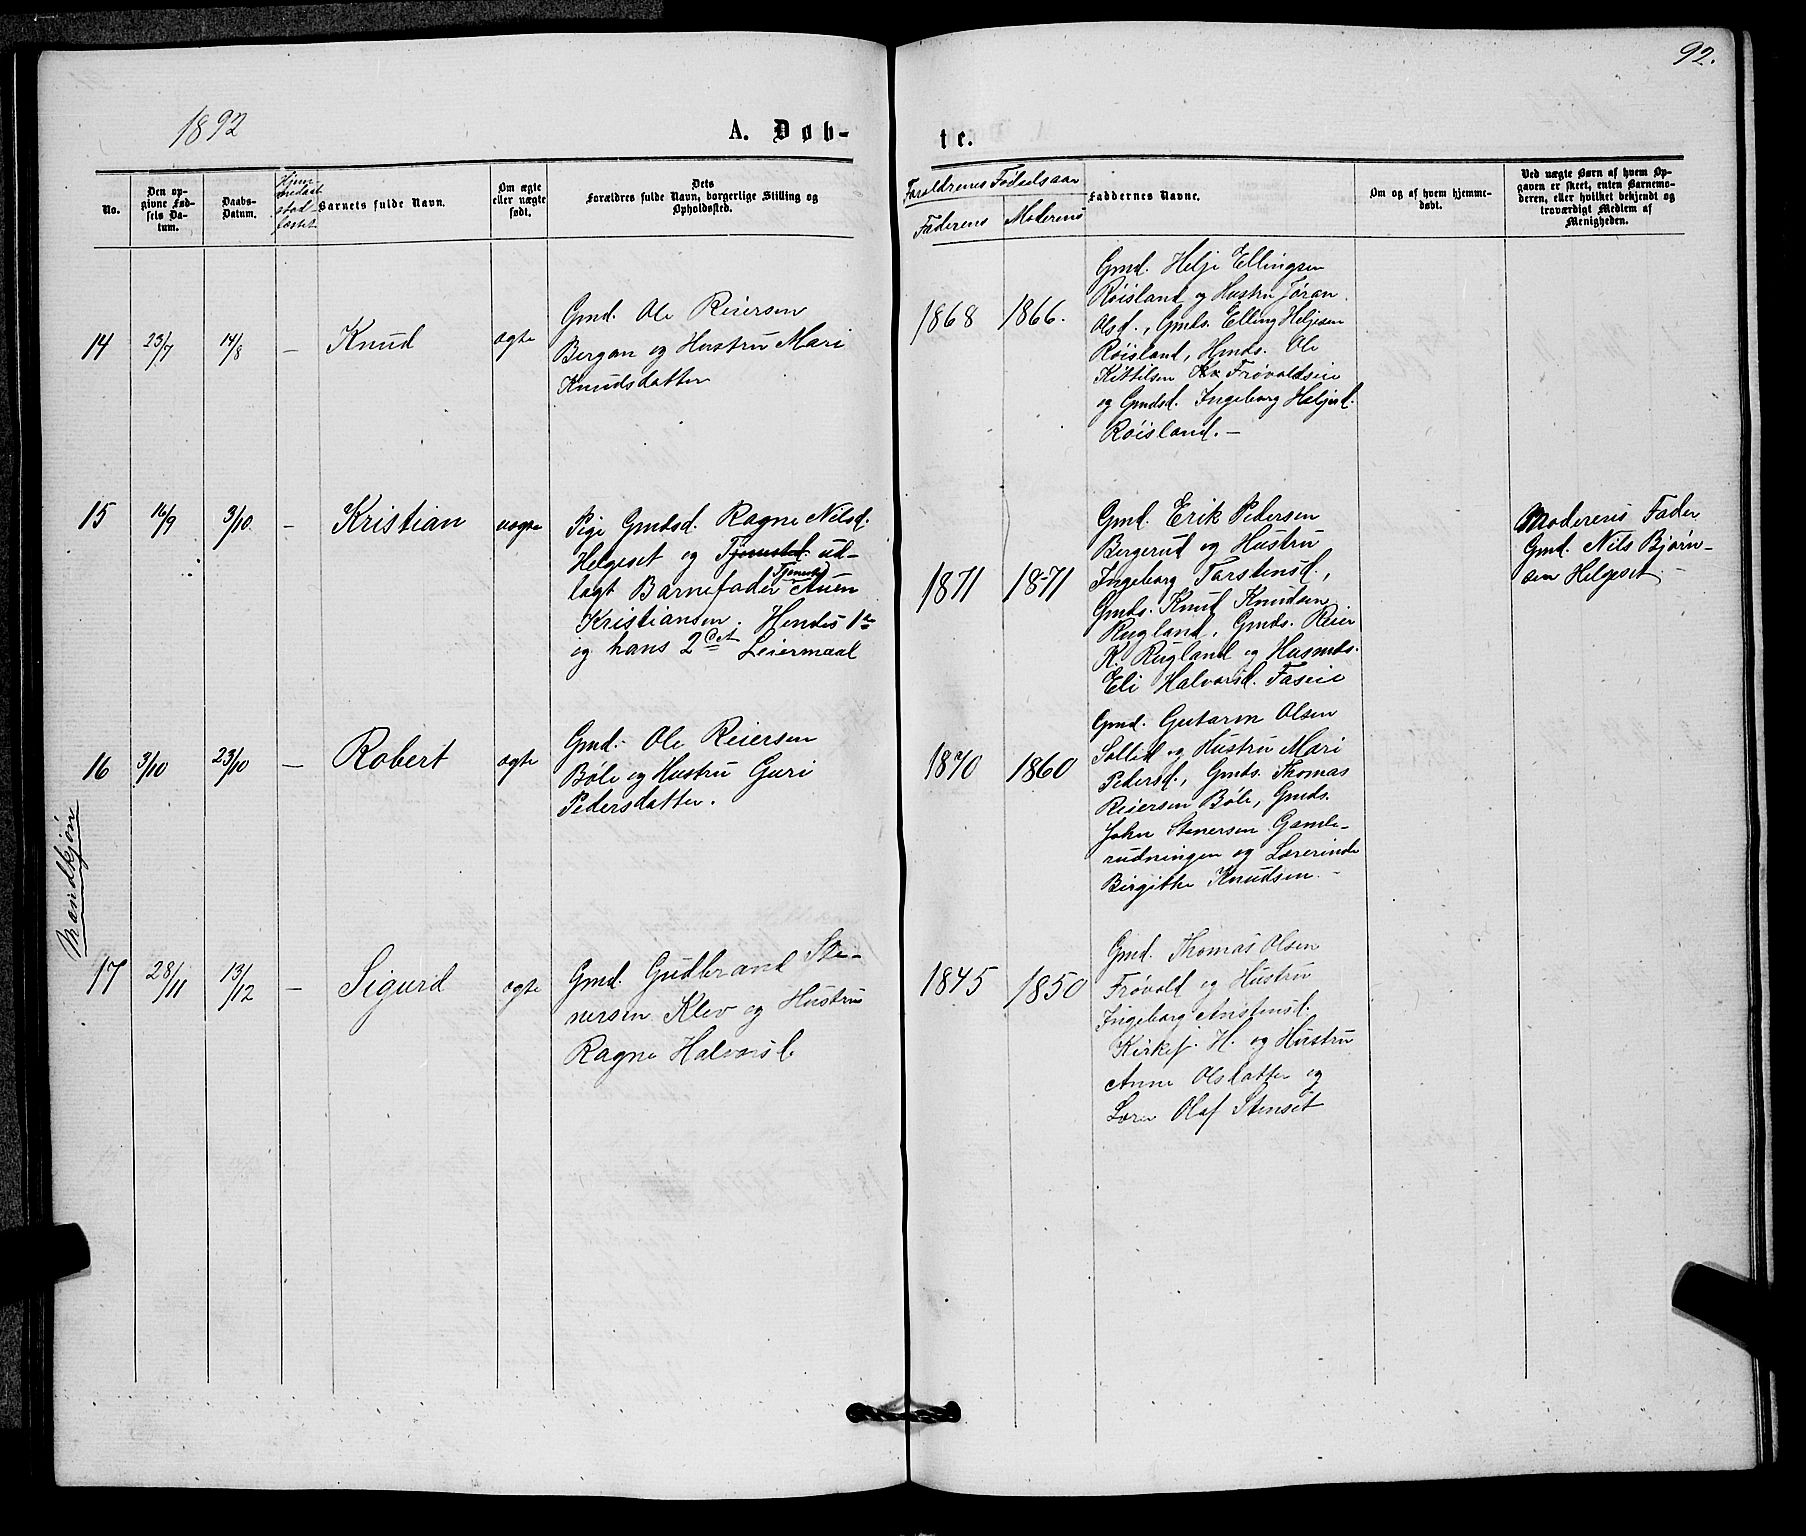 92.
1892
A. Døb-
te.
No.
Den op-
givne Fød-
sels Da-
tum.
Daabs-
Datum.
Hjem-
medaab
stad-
fæstet
Barnets fulde Navn.
Om ægte
eller uægte
født.
Dets
Forældres fulde Navn, borgerlige Stilling og
Opholdssted.
Forældrenes Fødselsaar
Faderens
Moderens
Faddernes Navne.
Om og af hvem hjemme-
døbt.
Ved uægte Børn af hvem Op-
gaven er skeet, enten Barnemo-
deren, eller hvilket bekjendt og
troværdigt Medlem af
Menigheden.
Mandkjøn
14
23/7
14/8
—
Knud
ægte
Gmd. Ole Reiersen
Bergan og Hustru Mari
Knudsdatter
1868
1866.
Gmd. Helje Ellingsen
Røisland og Hustru Jøran
Olsd., Gmds. Elling Heljesen
Røisland, Hmds. Ole
Kittilsen Frøvoldseie
og Gmdsd. Ingeborg Heljesd.
Røisland. —
15
16/9
3/10.
—
Kristian
uægte
Pige Gmdsd. Ragne Nilsd.
Helgeset og Tjenestd. ud-
lagt Barnefader Tjenestd Auen
Kristiansen. Hendes 1ste
og hans 2det Leiermaal
1871
1871
Gmd. Erik Pedersen
Bergerud og Hustru
Ingeborg Torstensd.,
Gmds. Knud Knudsen
Rugland, Gmds. Reier
K. Rugland og Husmds.
Eli Halvorsd. Faseie
Moderens Fader
Gmd. Nils Bjørn-
sen Helgeset. —
16
3/10
23/10
—
Robert
ægte
Gmd. Ole Reiersen
Bøle og Hustru Guri
Pedersdatter.
1870
1860
Gmd. Gustavm Olsen
Sollid og Hustru Mari
Pedersd., Gmds. Thomas
Reiersen Bøle, Gmds.
John Stenersen Gamle-
rudningen og Lærerinde
Birgithe Knudsen. —
17
28/11
13/12
—
Sigurd
ægte
Gmd. Gudbrand Ste-
nersen Klev og Hustru
Ragne Halvorsd.
1845
1850
Gmd. Thomas Olsen
Frøvold og Hustru
Ingeborg Anstensd.
Kirkesj. H. og Hustru
Anne Olsdatter og
Lærer Olaf Stenset